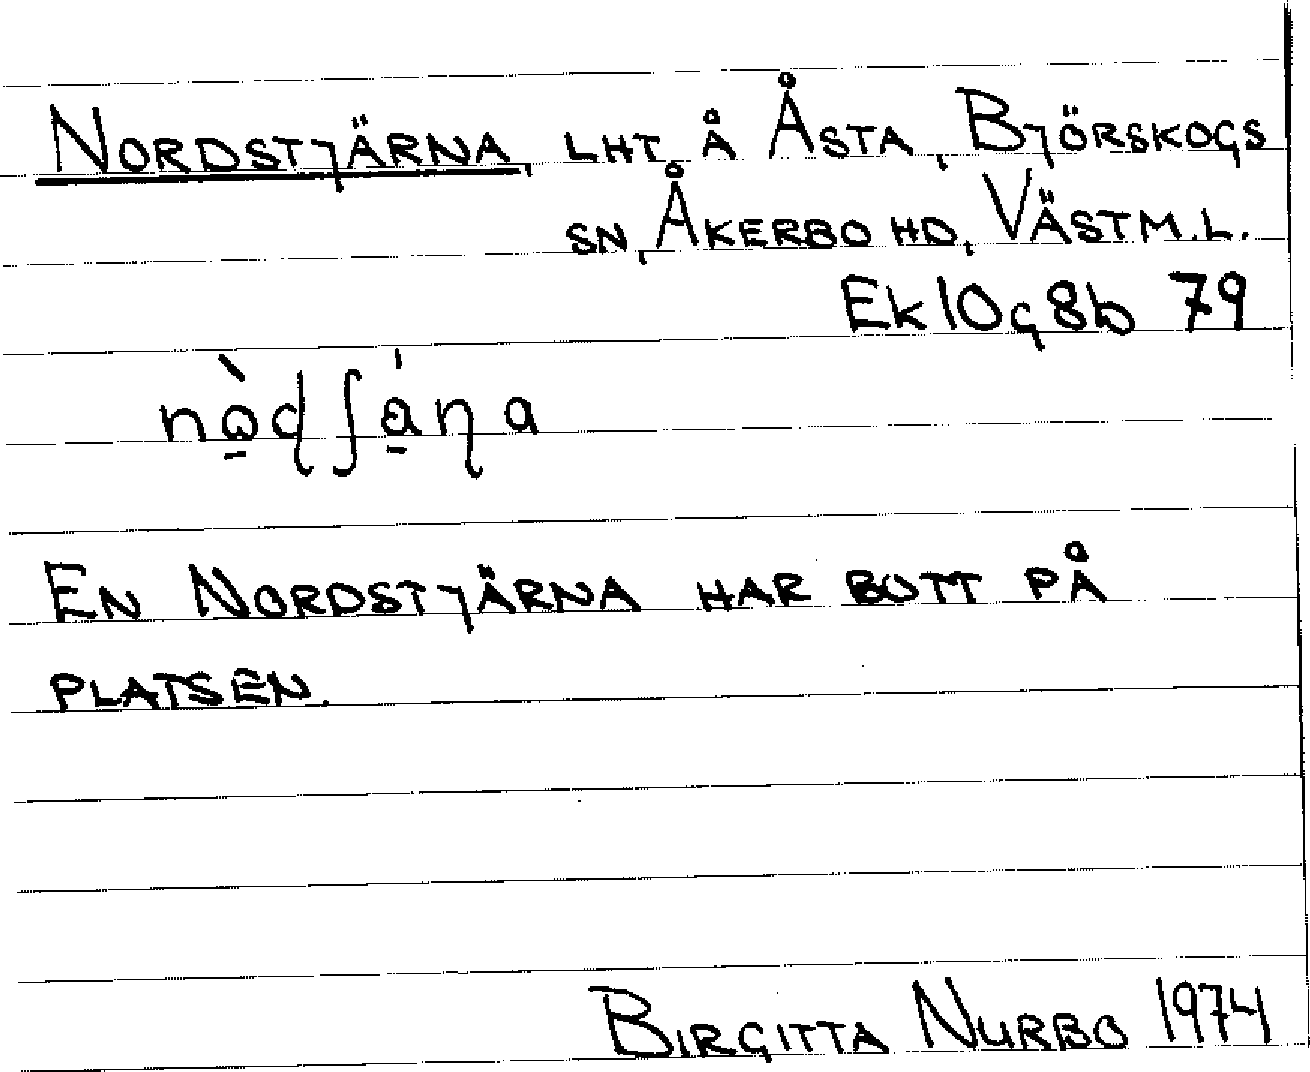 NORDSTJÄRNA, LHT Å ÅSTA, BJÖRSKOGS
SN, ÅKERBO HD, VÄSTM.L.
Ek 10g8b 79
EN NORDSTJÄRNA HAR BOTT PÅ
PLATSEN.
BIRGITTA NURBO 1974